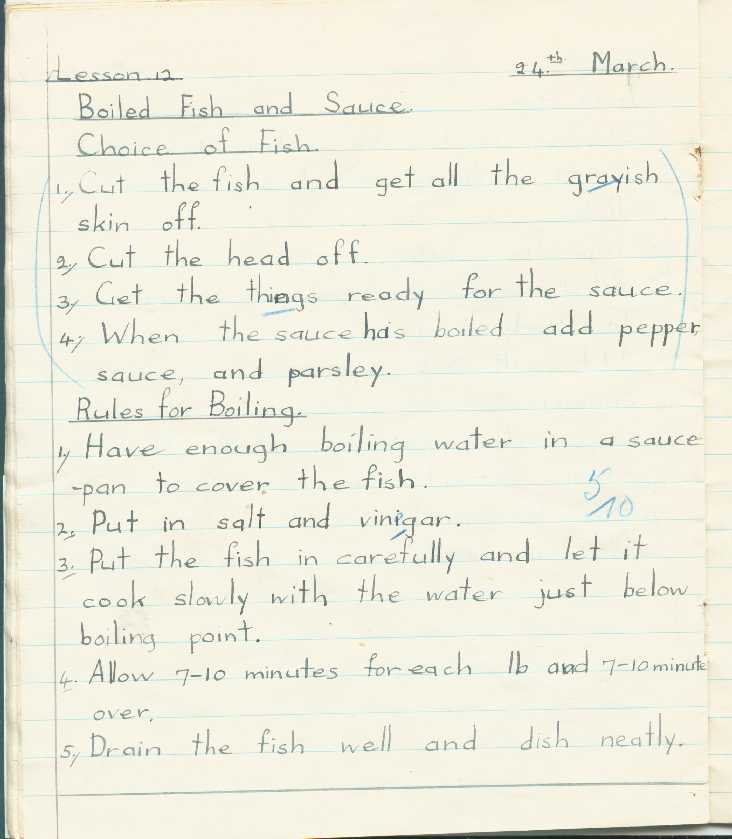 Lesson 12 24.th March.
Boiled Fish and Sauce.
Choice of Fish.
1, Cut the fish and get all the grayish
skin off.
2, Cut the head off.
3, Get the things ready for the sauce.
4, When the sauce has boiled add pepper,
sauce, and parsley.
Rules for Boiling.
1, Have enough boiling water in a sauce
-pan to cover the fish.
5/10
2, Put in salt and vinigar.
3. Put the fish in carefully and let it
cook slowly with the water just below
boiling point.
4. Allow 7-10 minutes for each lb and 7-10 minute
over.
5, Drain the fish well and dish neatly.